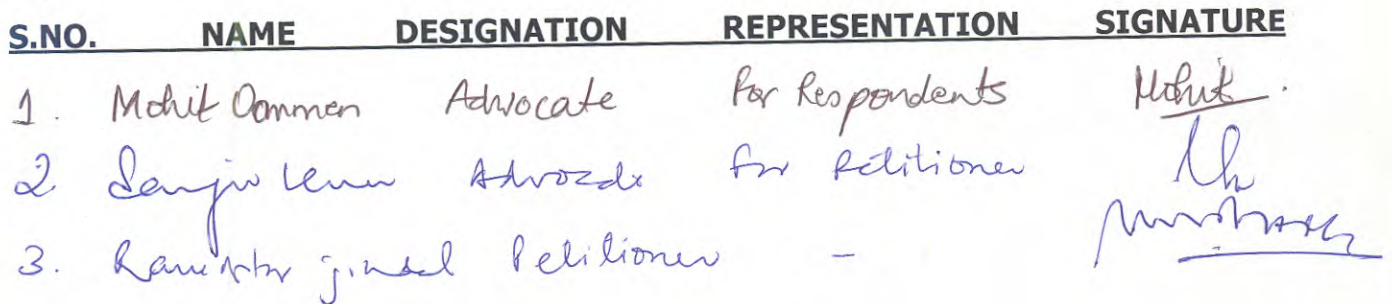 S.NO. NAME DESIGNATION REPRESENTATION SIGNATURE
1. Mohit Oommen Advocate For Respondents Mohit.
2 Advocate for Petitioner
3. Petitioner -